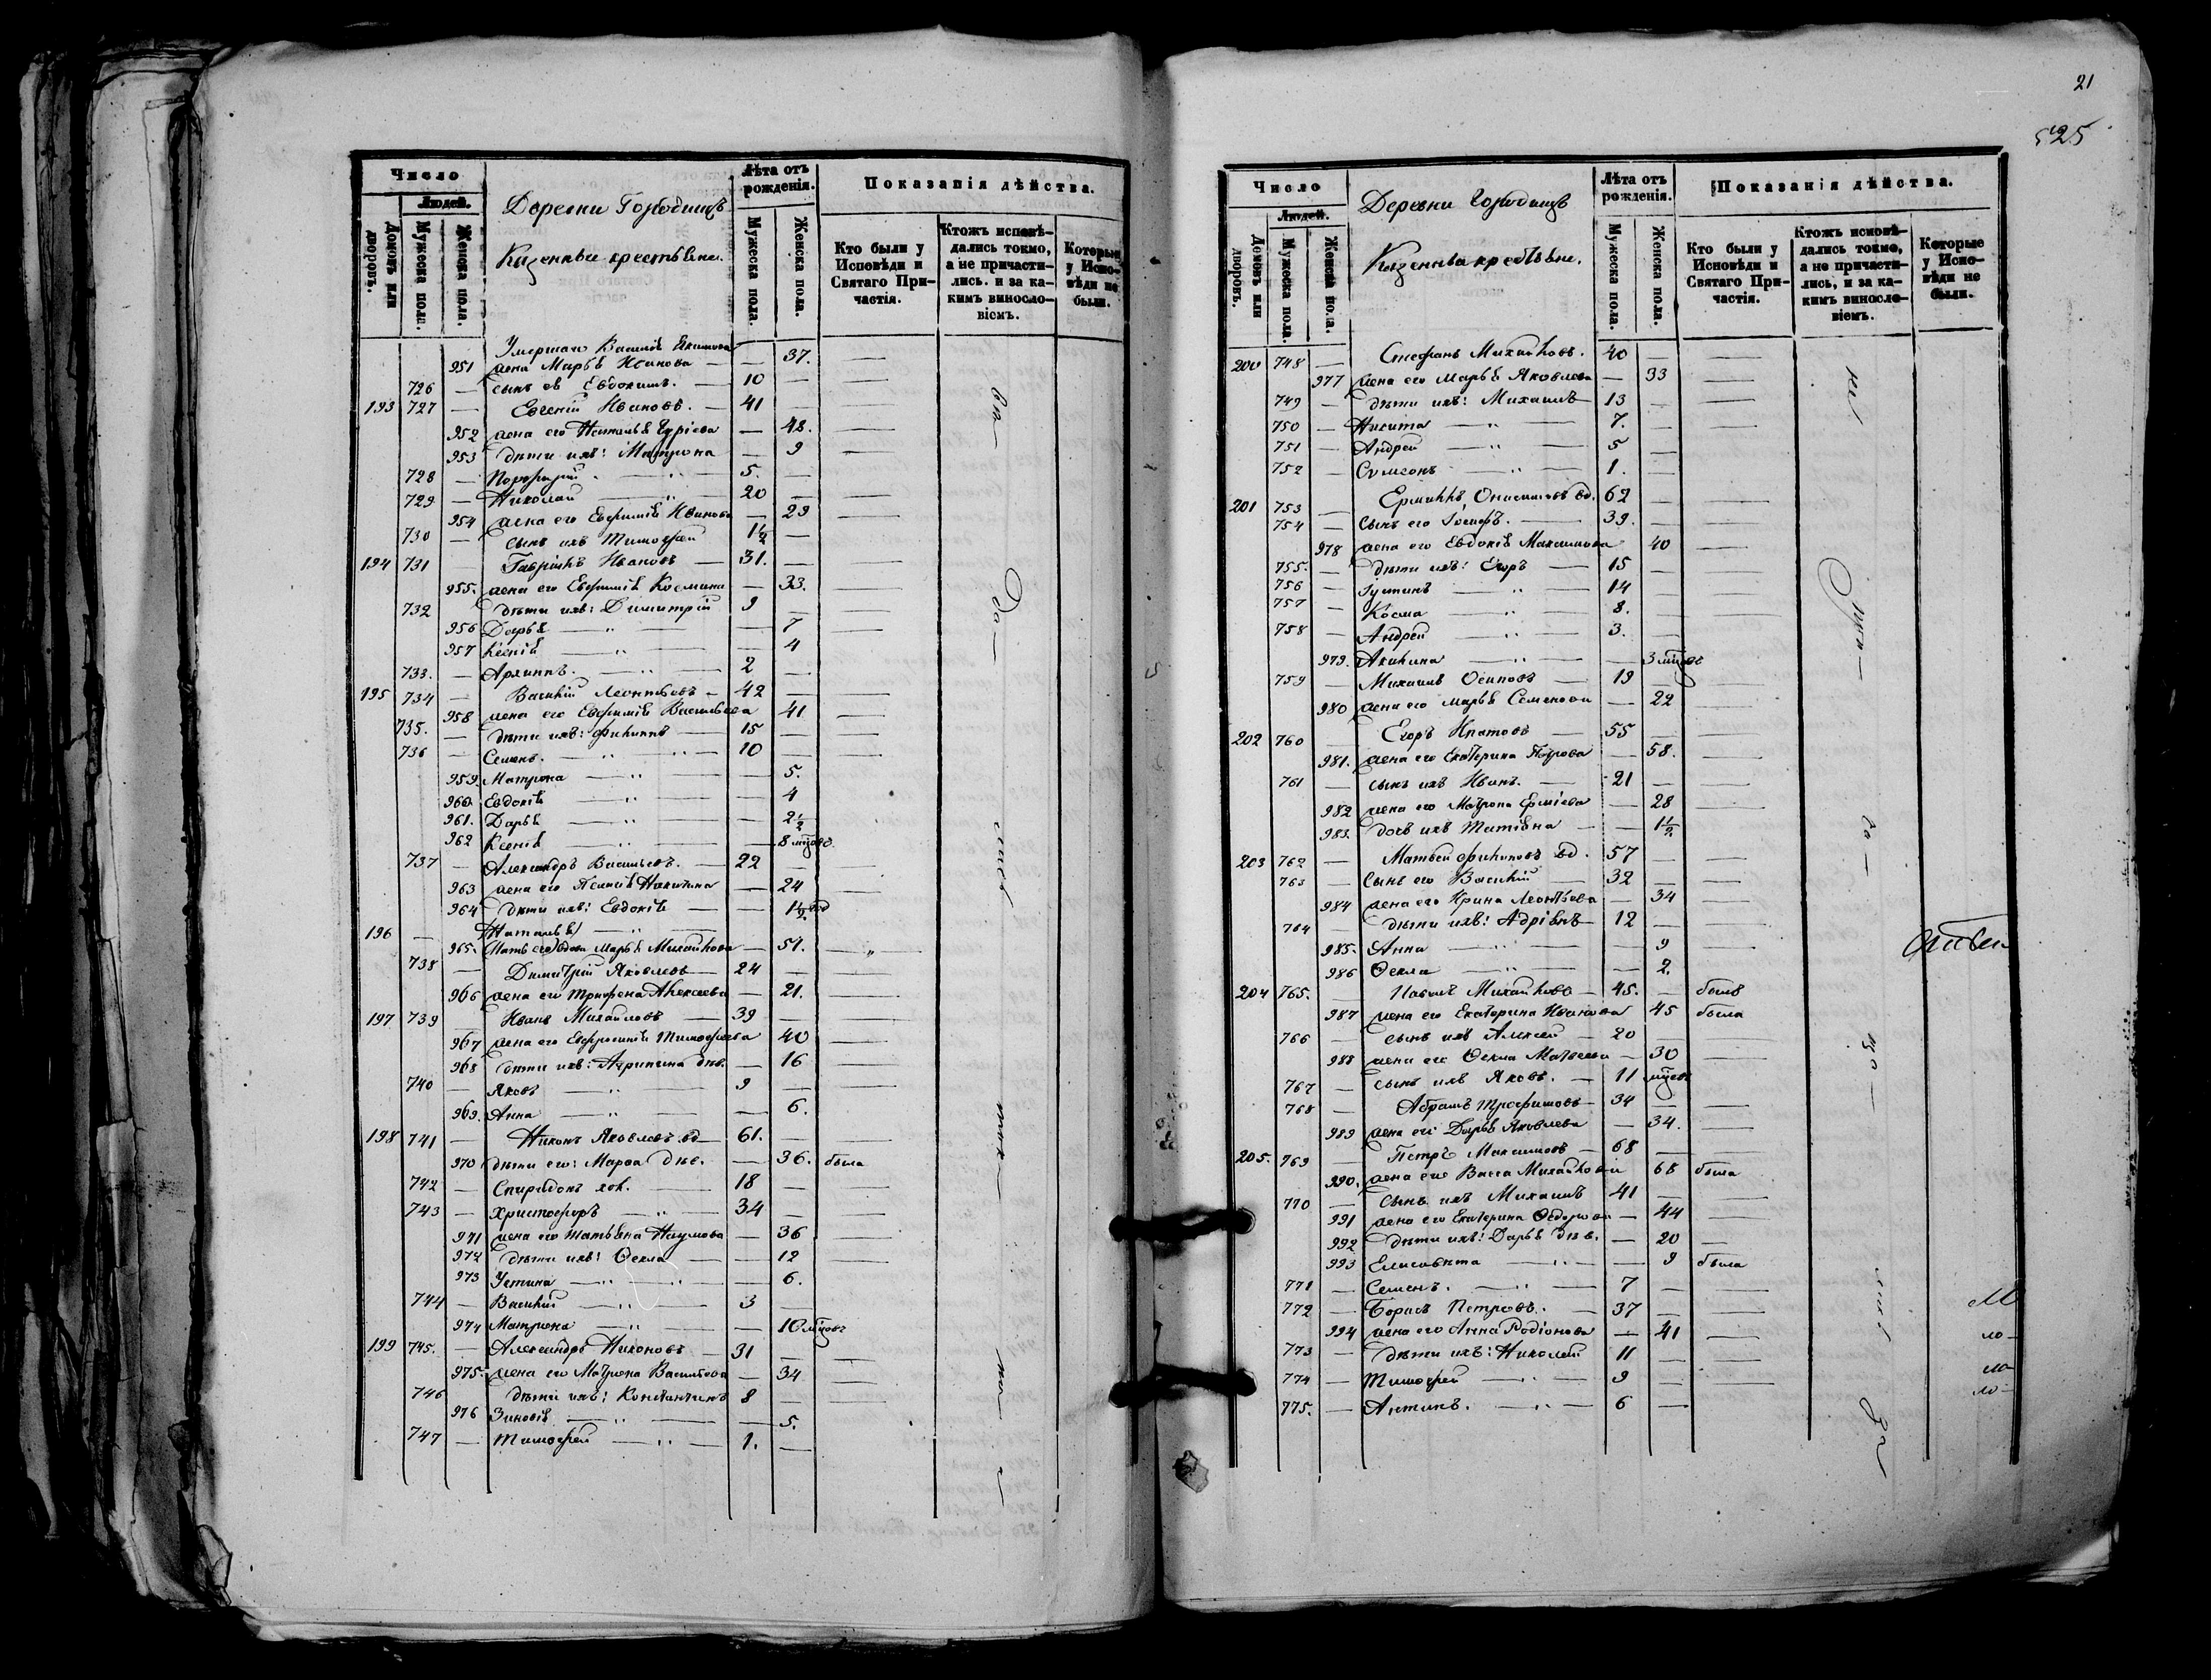 Число
Людей.
Домовъ или дворовъ.
Мужеска пола.
Женска пола.
Деревни Городищъ
Казенныи крестьяне.
Лѣта отъ рожденія.
Мужеска пола.
Женска пола.
Показанія дѣйства.
Кто были у Исповѣди и Святаго Причастія.
Ктожъ исповѣдались токмо, а не причастились. и за какимъ винословіемъ.
Которые у Исповѣди не были.
Умершаго Василія Якимова
951 жена Марья Иванова — 37.
726 — сынъ ея Евдокимъ. — 10 —
193 727 — Евгеній Ивановъ. — 41 —
952 жена его Наталья Гуріева — 48.
953 дѣти ихъ: Матрона — 9
728 — Порфирій — 5. —
729 — Николай — 20 —
954 жена его Евфимія Иванова — 29
730 — сынъ ихъ Тимофей 1½ —
194 731 — Гавріилъ Ивановъ — 31. —
955. жена его Евфимія Космина — 33.
732 дѣти ихъ: Димитрій 9 —
956 Дарья — 7
957 Ксенія — 4
733. — Архипъ. — 2 —
195 734 — Василій Леонтьевъ — 42 —
958 жена его Евфимія Васильева 41
735. — дѣти ихъ: Филиппъ — 15 —
736 — Семенъ. — 10 —
959. Матрона — 5.
960. Евдокія — 4
961. Дарья — 2½
962 Ксенія — 8 мцовъ
737 — Александръ Васильевъ. — 22 —
963 жена его Никитина — 24
964 дѣти ихъ: Евдокія — 1½ год
196 — Наталья —
965. Мать его вдова Марья Михайлова — 51.
738 — Димитрій Яковлевъ — 24 —
966 жена его Трифена Алексеева — 21.
197 739 — Иванъ Михайловъ — 39 —
967 жена его Евфросинія Тимофеева 40
968 дѣти ихъ: Агрипина дѣв. — 16
740 — Яковъ — 9 —
969. Анна — 6.
198 741 — Никонъ Яковлевъ вд — 61. —
970 дѣти его: Марѳа дѣв. — 36. была
742 — Спиридонъ хол. — 18 —
743 — Христофоръ — 34 —
971 жена его Татьяна Наумова — 36
972 дѣти ихъ: Ѳекла — 12
973 Устина — 6.
744 — Василій — 3 —
974 Матрона — 10 мцовъ
199 745. — Александръ Никоновъ — 31 —
975. жена его Матрона Васильева — 34
746 дѣти ихъ: Константинъ 8 —
976 Зиновія — 5.
747 — Тимофей — 1. —
21
525
Число
Людей.
Домовъ или дворовъ.
Мужеска пола.
Женска пола.
Деревни Городищъ
Казенныи крестьяне.
Лѣта отъ рожденія.
Мужеска пола.
Женска пола.
Показанія дѣйства.
Кто были у Исповѣди и Святаго Причастія.
Ктожъ исповѣдались токмо, а не причастились, и за какимъ винословіемъ.
Которые у Исповѣди не были.
200 748 — Стефанъ Михайловъ. 40 —
977 жена его Марья Яковлева — 33
749 — дѣти ихъ: Михаилъ — 13 —
750 — Никита — 7. —
751 — Андрей — 5 —
752 — Сѵмеонъ — 1. —
201 753 — Ермилъ Онисимовъ вд. 62 —
754 — сынъ его Іосифъ. — 39. —
978 жена его Евдокія Максимова 40
755. — дѣти ихъ: Егоръ — 15 —
756 — Іустинъ — 14 —
757 — Косма — 8. —
758 — Андрей — 3. —
979. Акилина — 3 мцовъ
759 — Михаилъ Осиповъ — 19 —
980 жена его Марья Семенова — 22
202 760 Егоръ Ипатовъ — 55 —
981. жена его Екатерина Петрова — 58.
761 — сынъ ихъ Иванъ. — 21 —
982 жена его Матрона Ерміева — 28
983. дочь ихъ Татіана — 1½
203 762 — Матвей Филиповъ вд. 57 —
763 — Сынъ его Василій — 32 —
984 жена его Ирина Леонтьева — 34
764 — дѣти ихъ: Адріянъ — 12 —
985. Анна — 9
986 Ѳекла — 2.
204 765. — Павелъ Михайловъ — 45. — былъ
987 жена его Екатерина Иванова 45 была
766 — сынъ ихъ Алексей — 20 —
988 жена его Ѳекла Матвеева — 30
767 — сынъ ихъ Яковъ. — 11 мцовъ
768 — Абрамъ Трофимовъ — 34 —
989 жена его Дарья Яковлева — 34.
205. 769 — Петръ Максимовъ — 68 —
990. жена его Васса Михайлова 68 была
770 — сынъ ихъ Михаилъ 41 —
991 жена его Екатерина Ѳедорова — 44
992 дѣти ихъ: Дарья дѣв. — 20
993 Елисавета — 9 была
771 — Семенъ. — 7 —
772 — Борисъ Петровъ. — 37 —
994 жена его Анна Родіонова — 41
773 — дѣти ихъ: Николай 11 —
774 — Тимофей — 9 —
775. — Антипъ. — 6 —